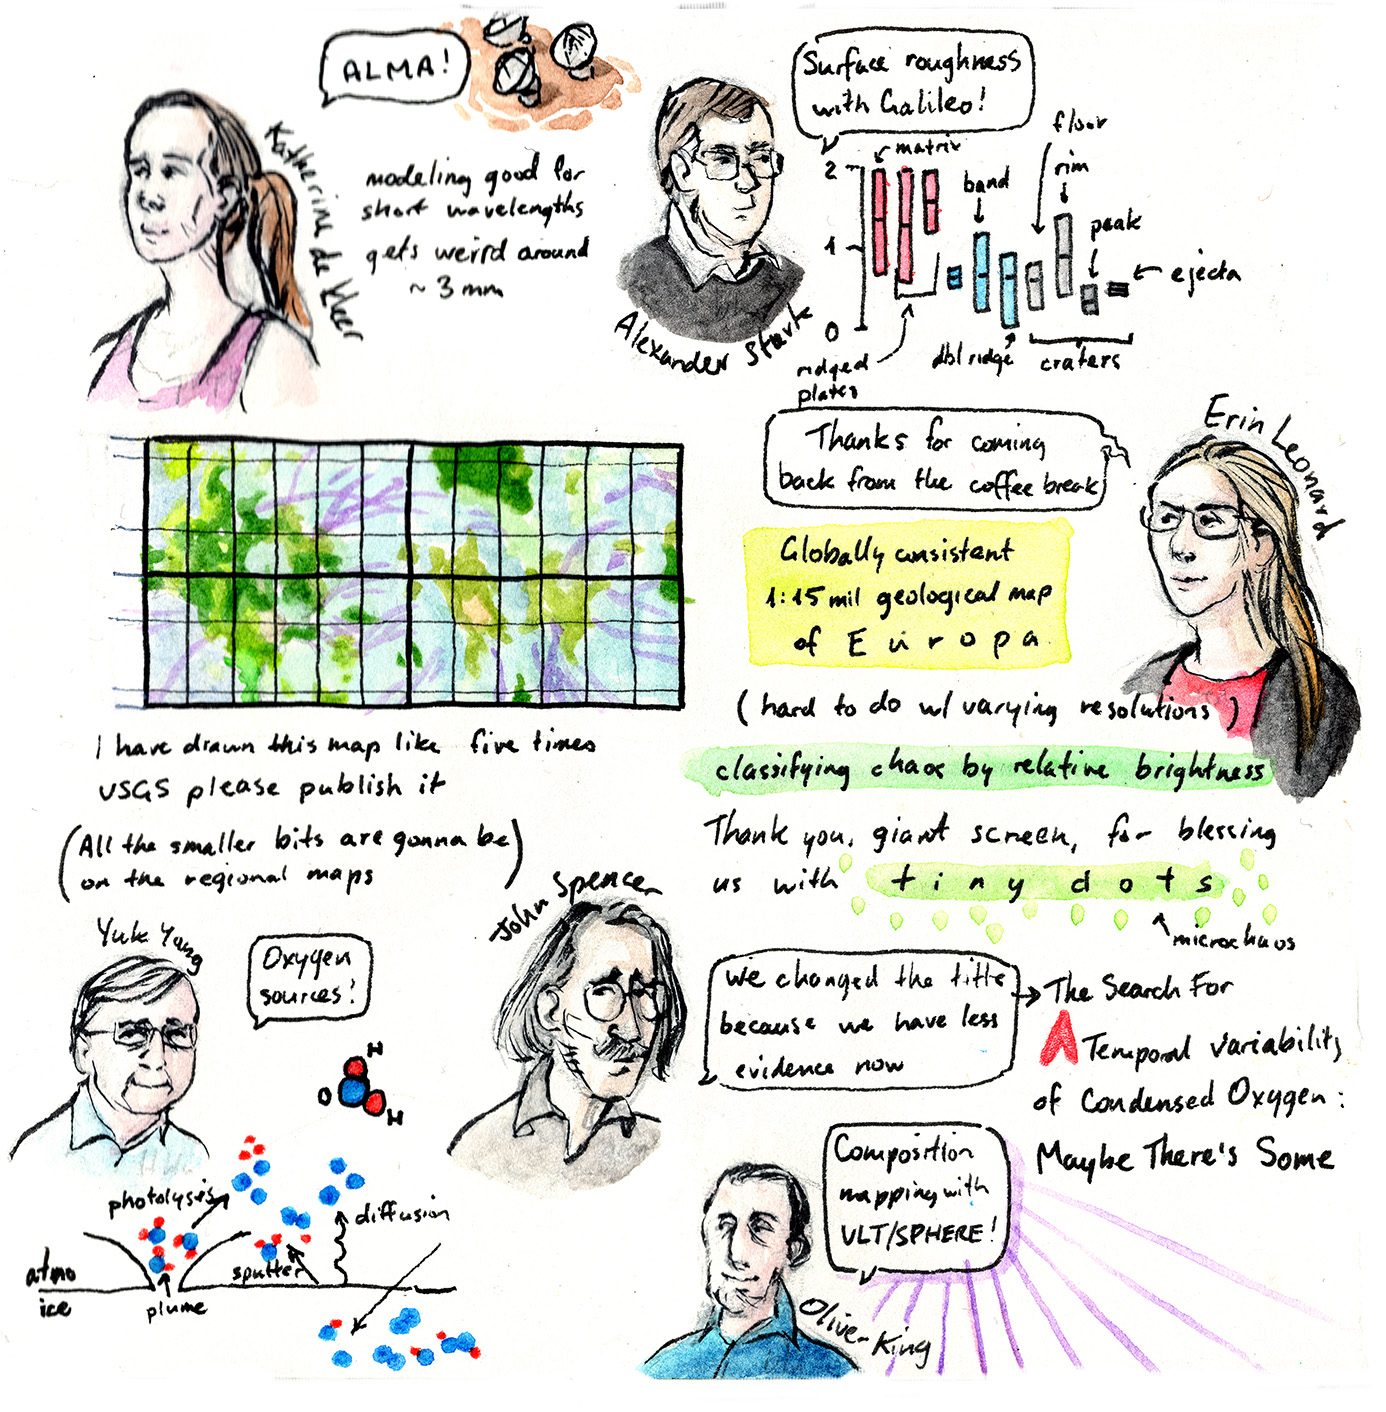 ALMA!
Katherine de Kleer
modeling good for
short wavelengths
gets weird around
~ 3 mm
Surface roughness
with Galileo!
Alexander Stark
2
1
0
matrix
band
floor
rim
peak
ejecta
ridged
plates
dbl ridge
craters
Thanks for coming
back from the coffee break
Erin Leonard
Globally consistent
1:15 mil geological map
of Europa
(hard to do w/ varying resolutions)
classifying chaos by relative brightness
I have drawn this map like five times
USGS please publish it
(All the smaller bits are gonna be)
on the regional maps
Thank you, giant screen, for blessing
us with tiny dots
microchaos
Yuk Yung
Oxygen
sources!
H
O
H
photolysis
diffusion
sputter
atmo
ice
plume
John Spencer
We changed the title
because we have less
evidence now
The Search For
A Temporal Variability
of Condensed Oxygen:
Maybe There's Some
Composition
mapping with
VLT/SPHERE!
Oliver King